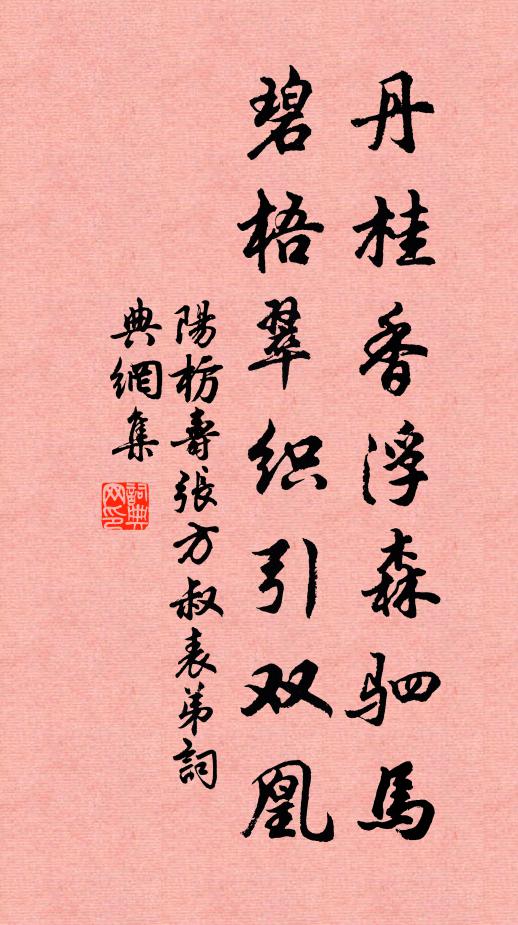 丹桂香浮森驷馬
碧梧翠织引双凰
陽枋壽張方叔表弟詞
典網集
詞典
网印